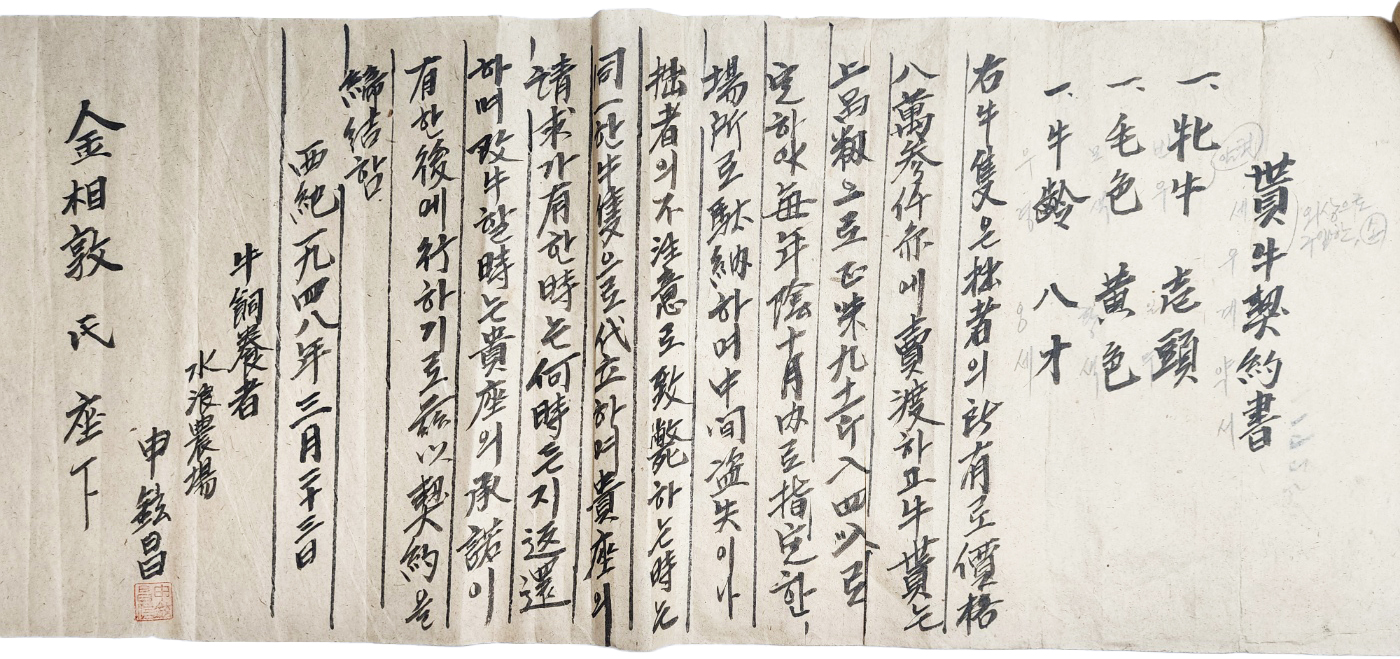 貰牛契約書
一. 牝牛 壱頭
一. 毛色 黄色
一. 牛齡 八才
右牛隻은拙者의所有로價格
八萬參仟 에賣渡하고牛貰는
上品籾으로正味九十斤入四叭로
定하야每年陰十月內로指定한
場所로駄納하며中間盜失이나
拙者의不注意로致斃하는時는
同一한牛隻으로代立하며貴座의
請求가有한時는何時든지返還
하며改牛할時는貴座의承諾이
有한後에行하기로玆以契約을
締結함
西紀一九四八年三月二十三日
牛飼養者
水浪農場
申鉉昌
金相敦氏 座下